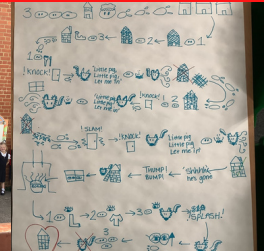 3
1 3 2 1
! Knock! "Little pig, Little pig, Let me in"
Little pig, Little pig, Let me in ! Knock! 2
! SLAM! ! Knock! Little pig Little pig Let me in
THUMP! BUMP!
1 2 3 SPLASH!
3